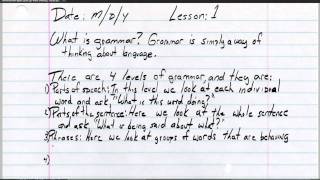 Date: M/D/Y Lesson: 1
What is grammar? Grammar is simply a way of
thinking about language.
There are 4 levels of grammar, and they are:
1) Parts of speech: In this level we look at each individual
word and ask, "What is this word doing?"
2) Parts of the sentence: Here we look at the whole sentence
and ask "What is being said about what?"
3) Phrases: Here we look at groups of words that are behaving
4)